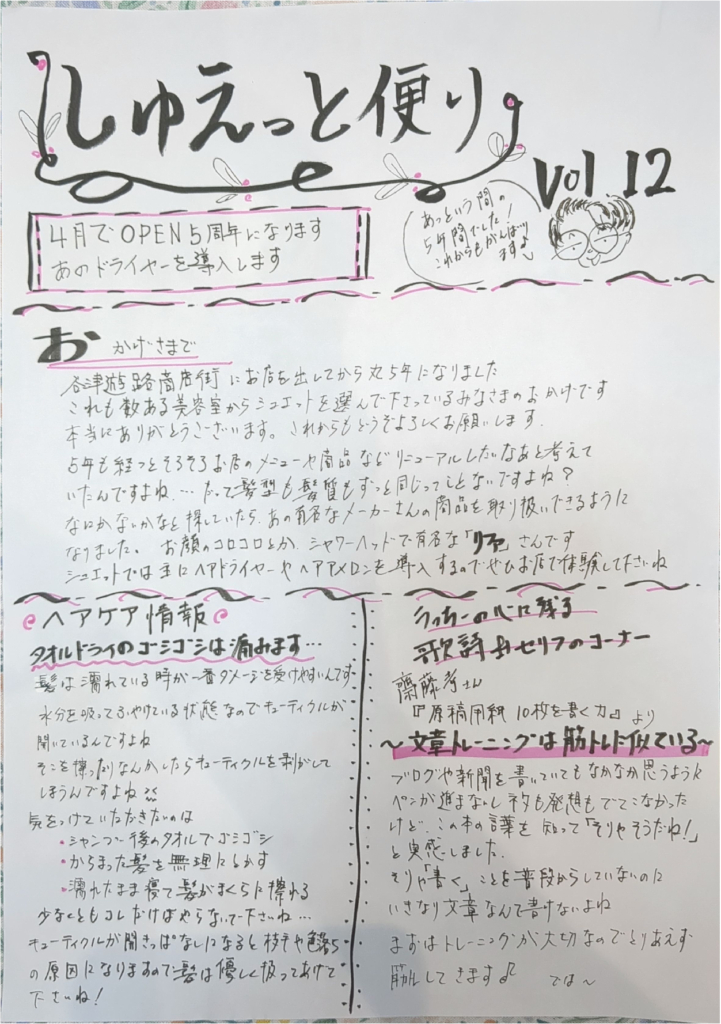 しゅえっと便り
Vol 12
4月でOPEN5周年になります
あのドライヤーを導入します
あっという間の
5年間でした！
これからもがんばり
ますよ
おかげさまで
谷津遊路商店街にお店を出してから丸5年になりました
これも数ある美容室からシュエットを選んで下さっているみなさまのおかげです
本当にありがとうございます。これからもどうぞよろしくお願いします.
5年も経つとそろそろお店のメニューや商品などリニューアルしたいなあと考えて
いたんですよね…だって髪型も髪質もずっと同じってことないですよね？
なにかないかなと探していたら、あの有名なメーカーさんの商品を取り扱いできるように
なりました。お顔のコロコロとか、シャワーヘッドで有名な「リファ」さんです
シュエットでは主にヘアドライヤーやヘアアイロンを導入するのでぜひお店で体験して下さいね
ヘアケア情報
タオルドライのゴシゴシは痛みます…
髪は濡れている時が一番ダメージを受けやすいんです
水分を吸ってふやけている状態なのでキューティクルが
開いているんですよね
そこを擦ったりなんかしたらキューティクルを剥がして
しまうんですよね
気をつけていただきたいのは
・シャンプー後のタオルでゴシゴシ
・からまった髪を無理にとかす
・濡れたまま寝て髪がまくらに擦れる
少なくともコレだけはやらないで下さいね…
キューティクルが開きっぱなしになると枝毛や色落ち
の原因になりますので髪は優しく扱ってあげて
下さいね！
うっちーの心に残る
歌詩andセリフのコーナー
齋藤孝さん
『原稿用紙10枚を書く力』より
〜文章トレーニングは筋トレに似ている〜
ブログや新聞を書いていてもなかなか思うように
ペンが進まないしネタも発想もでてこなかった
けど、この本の言葉を知って「そりゃそうだね！」
と実感しました.
そりゃ「書く」ことを普段からしていないのに
いきなり文章なんて書けないよね
まずはトレーニングが大切なのでとりあえず
筋トレしてきます♪ では〜